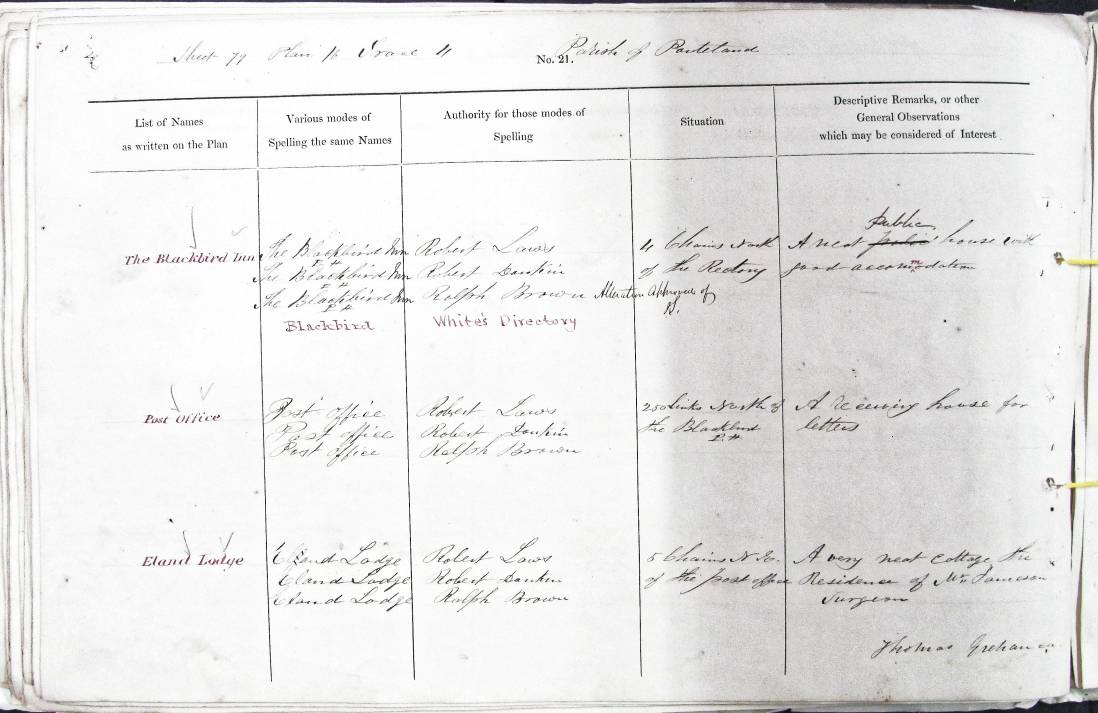 Sheet 79 Plan 16 Trace 4
No. 21.
Parish of Ponteland
List of Names
as written on the Plan
Various modes of
Spelling the same Names
Authority for those modes of
Spelling
Situation
Descriptive Remarks, or other
General Observations
which may be considered of Interest
The Blackbird Inn
The Blackbird Inn
P H
The Blackbird Inn
P H
The Blackbird Inn
P H
Blackbird
Robert Laws
Robert Dankin
Ralph Brown
White's Directory
4 Chains North
of the Rectory
Alteration Approved of
A neat public house with
good accommodation
Post Office
Post office
Post office
Post office
Robert Laws
Robert Dankin
Ralph Brown
250 links North of
the Blackbird
P.H
A receiving house for
letters
Eland Lodge
Eland Lodge
Eland Lodge
Eland Lodge
Robert Laws
Robert Dankin
Ralph Brown
5 Chains N.
of the post office
A very neat cottage the
Residence of Mr. Jameson
Surgeon
Thomas